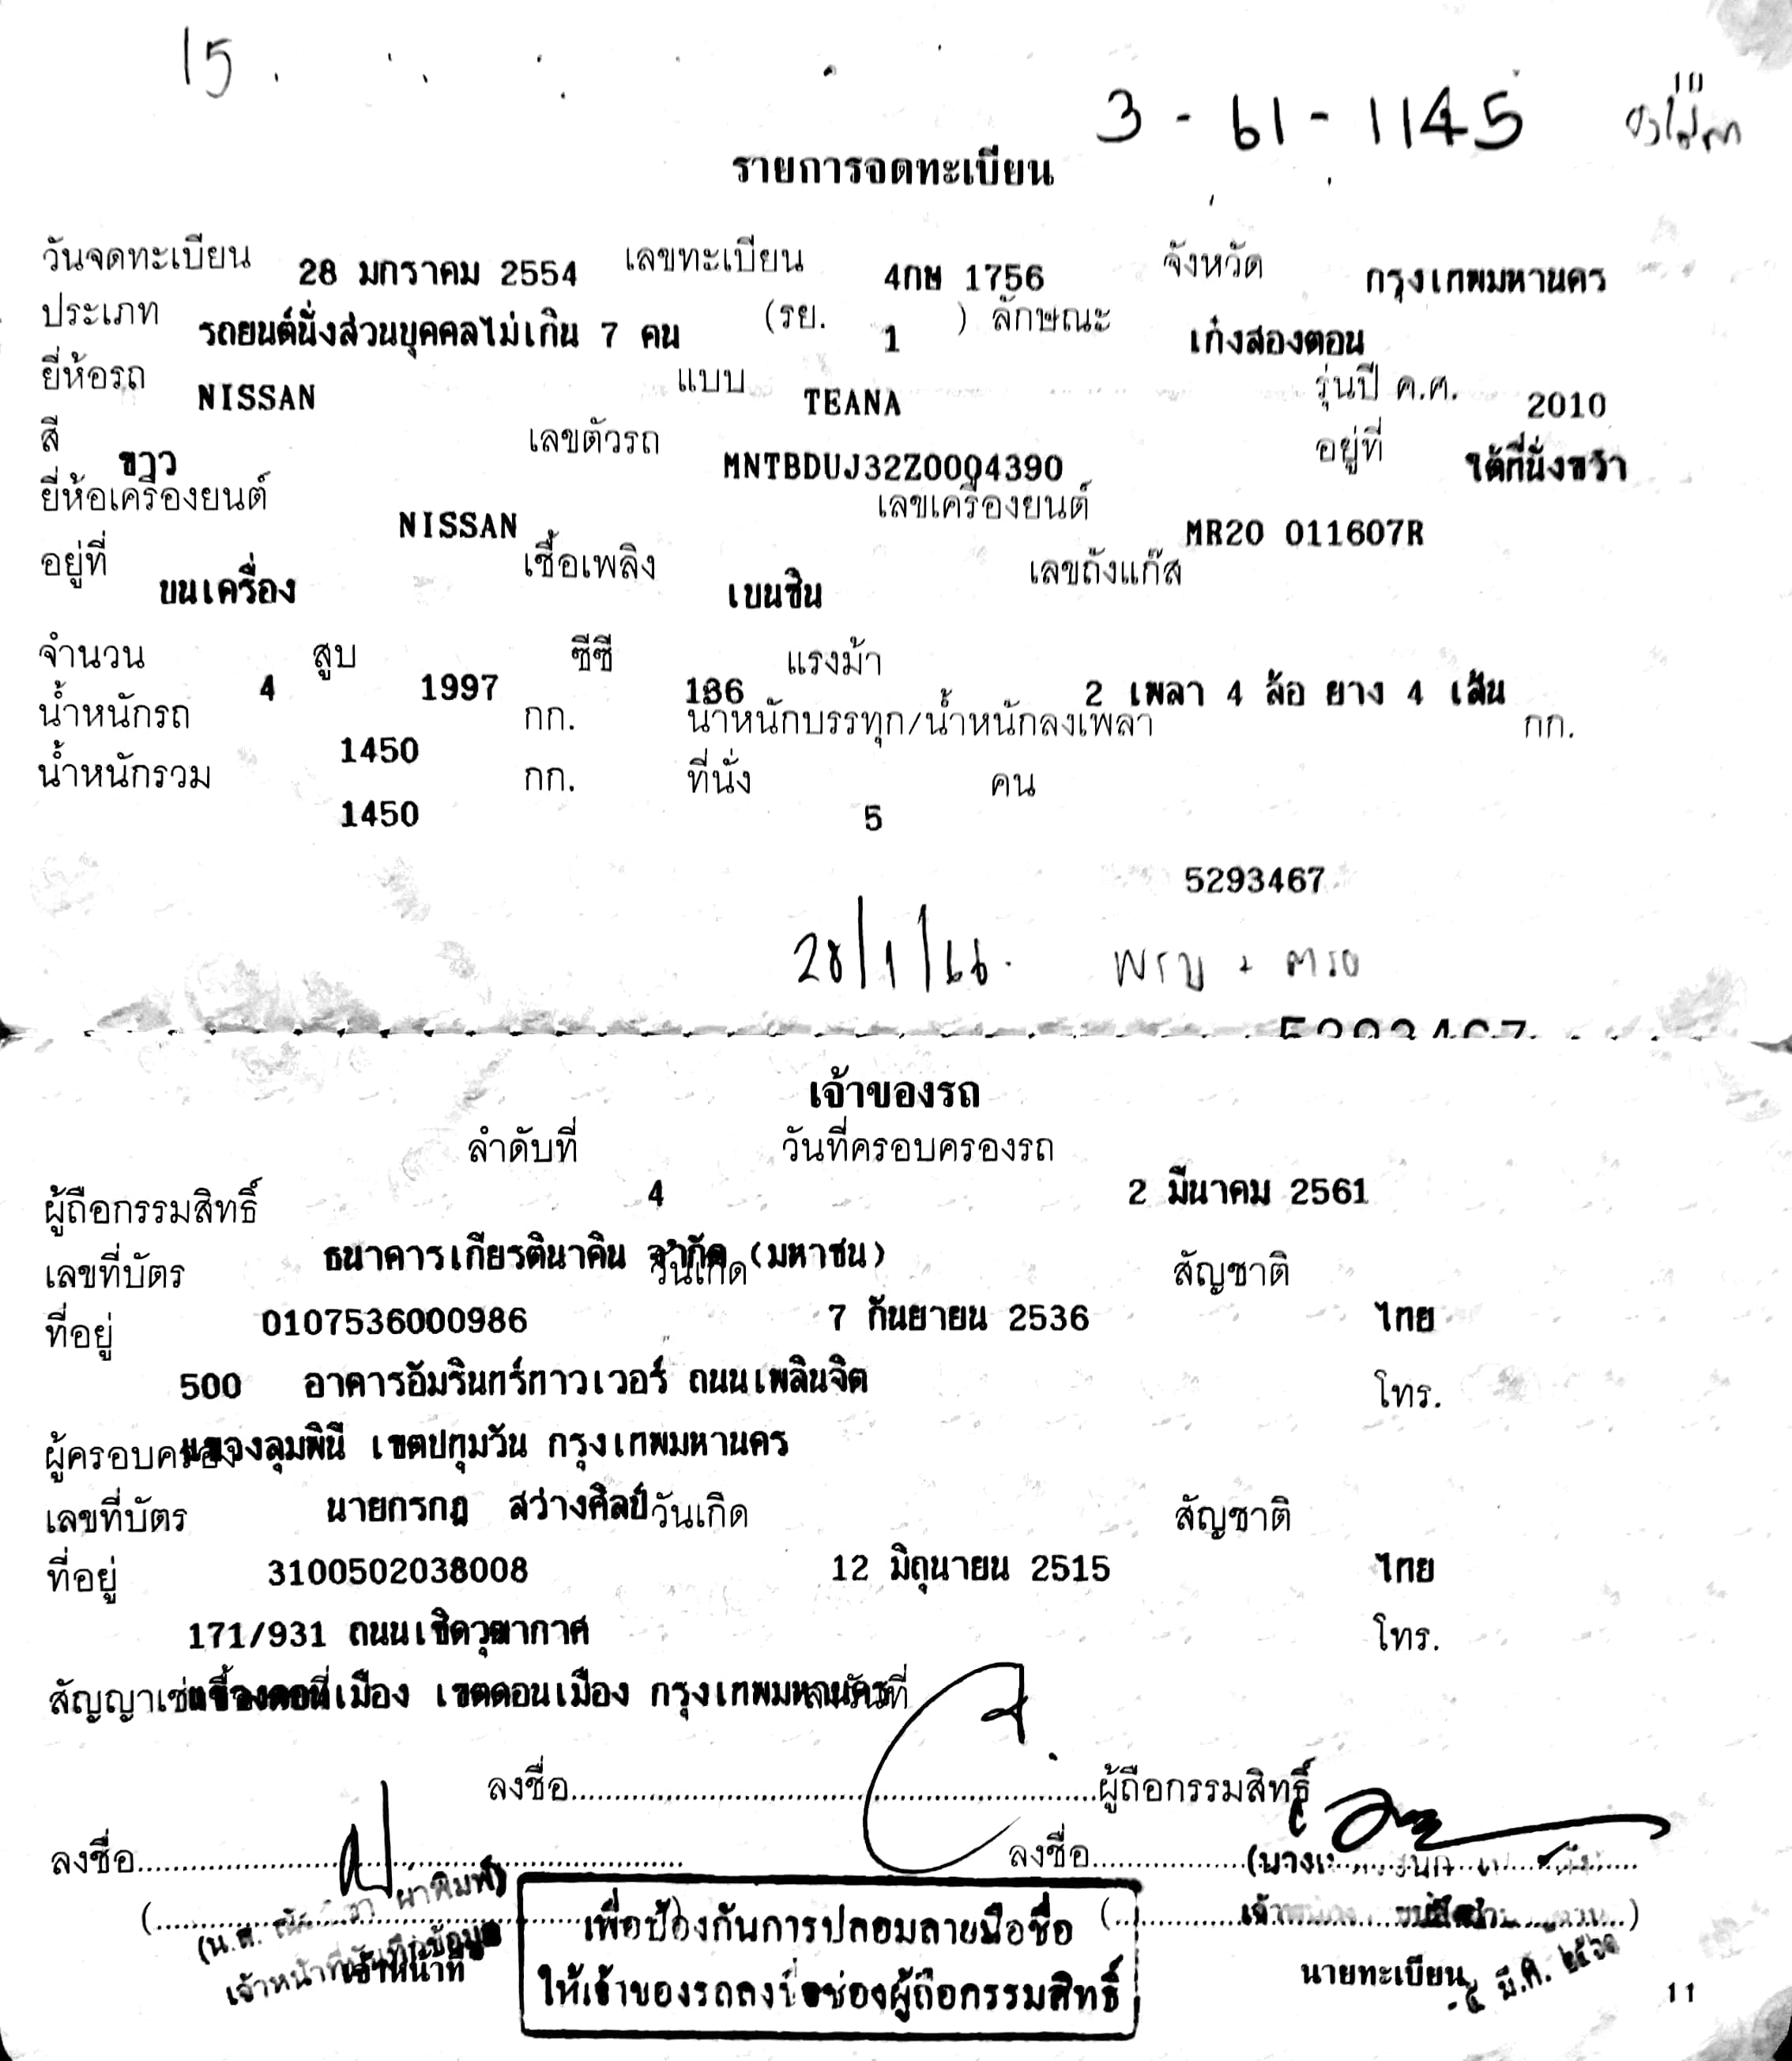 15.
3 - 61 - 1145
รายการจดทะเบียน
วันจดทะเบียน 28 มกราคม 2554 เลขทะเบียน 4กษ 1756 จังหวัด กรุงเทพมหานคร
ประเภท รถยนต์นั่งส่วนบุคคลไม่เกิน 7 คน (รย. 1 ) ลักษณะ เก๋งสองตอน
ยี่ห้อรถ NISSAN แบบ TEANA รุ่นปี ค.ศ. 2010
สี ขาว เลขตัวรถ MNTBDUJ32Z0004390 อยู่ที่ ใต้ที่นั่งขวา
ยี่ห้อเครื่องยนต์ NISSAN เลขเครื่องยนต์ MR20 011607R
อยู่ที่ บนเครื่อง เชื้อเพลิง เบนซิน เลขถังแก๊ส
จำนวน 4 สูบ 1997 ซีซี 136 แรงม้า 2 เพลา 4 ล้อ ยาง 4 เส้น
น้ำหนักรถ 1450 กก. น้ำหนักบรรทุก/น้ำหนักลงเพลา กก.
น้ำหนักรวม 1450 กก. ที่นั่ง 5 คน
5293467
28/1/66. พรบ + ตรอ
5293467
เจ้าของรถ
ลำดับที่ 4 วันที่ครอบครองรถ 2 มีนาคม 2561
ผู้ถือกรรมสิทธิ์ ธนาคารเกียรตินาคิน จำกัด (มหาชน)
เลขที่บัตร 0107536000986 วันเกิด 7 กันยายน 2536 สัญชาติ ไทย
ที่อยู่ 500 อาคารอัมรินทร์ทาวเวอร์ ถนนเพลินจิต โทร.
แขวงลุมพินี เขตปทุมวัน กรุงเทพมหานคร
ผู้ครอบครอง นายกรกฎ สว่างศิลป์
เลขที่บัตร 3100502038008 วันเกิด 12 มิถุนายน 2515 สัญชาติ ไทย
ที่อยู่ 171/931 ถนนเชิดวุฒากาศ โทร.
แขวงดอนเมือง เขตดอนเมือง กรุงเทพมหานคร
สัญญาเช่าซื้อเลขที่ ลงวันที่
ลงชื่อ ผู้ถือกรรมสิทธิ์
ลงชื่อ ลงชื่อ
เจ้าหน้าที่บันทึกข้อมูล
เจ้าหน้าที่
เพื่อป้องกันการปลอมลายมือชื่อ
ให้เจ้าของรถลงชื่อช่องผู้ถือกรรมสิทธิ์
นายทะเบียน
มี.ค. ๒๕๖๑
11